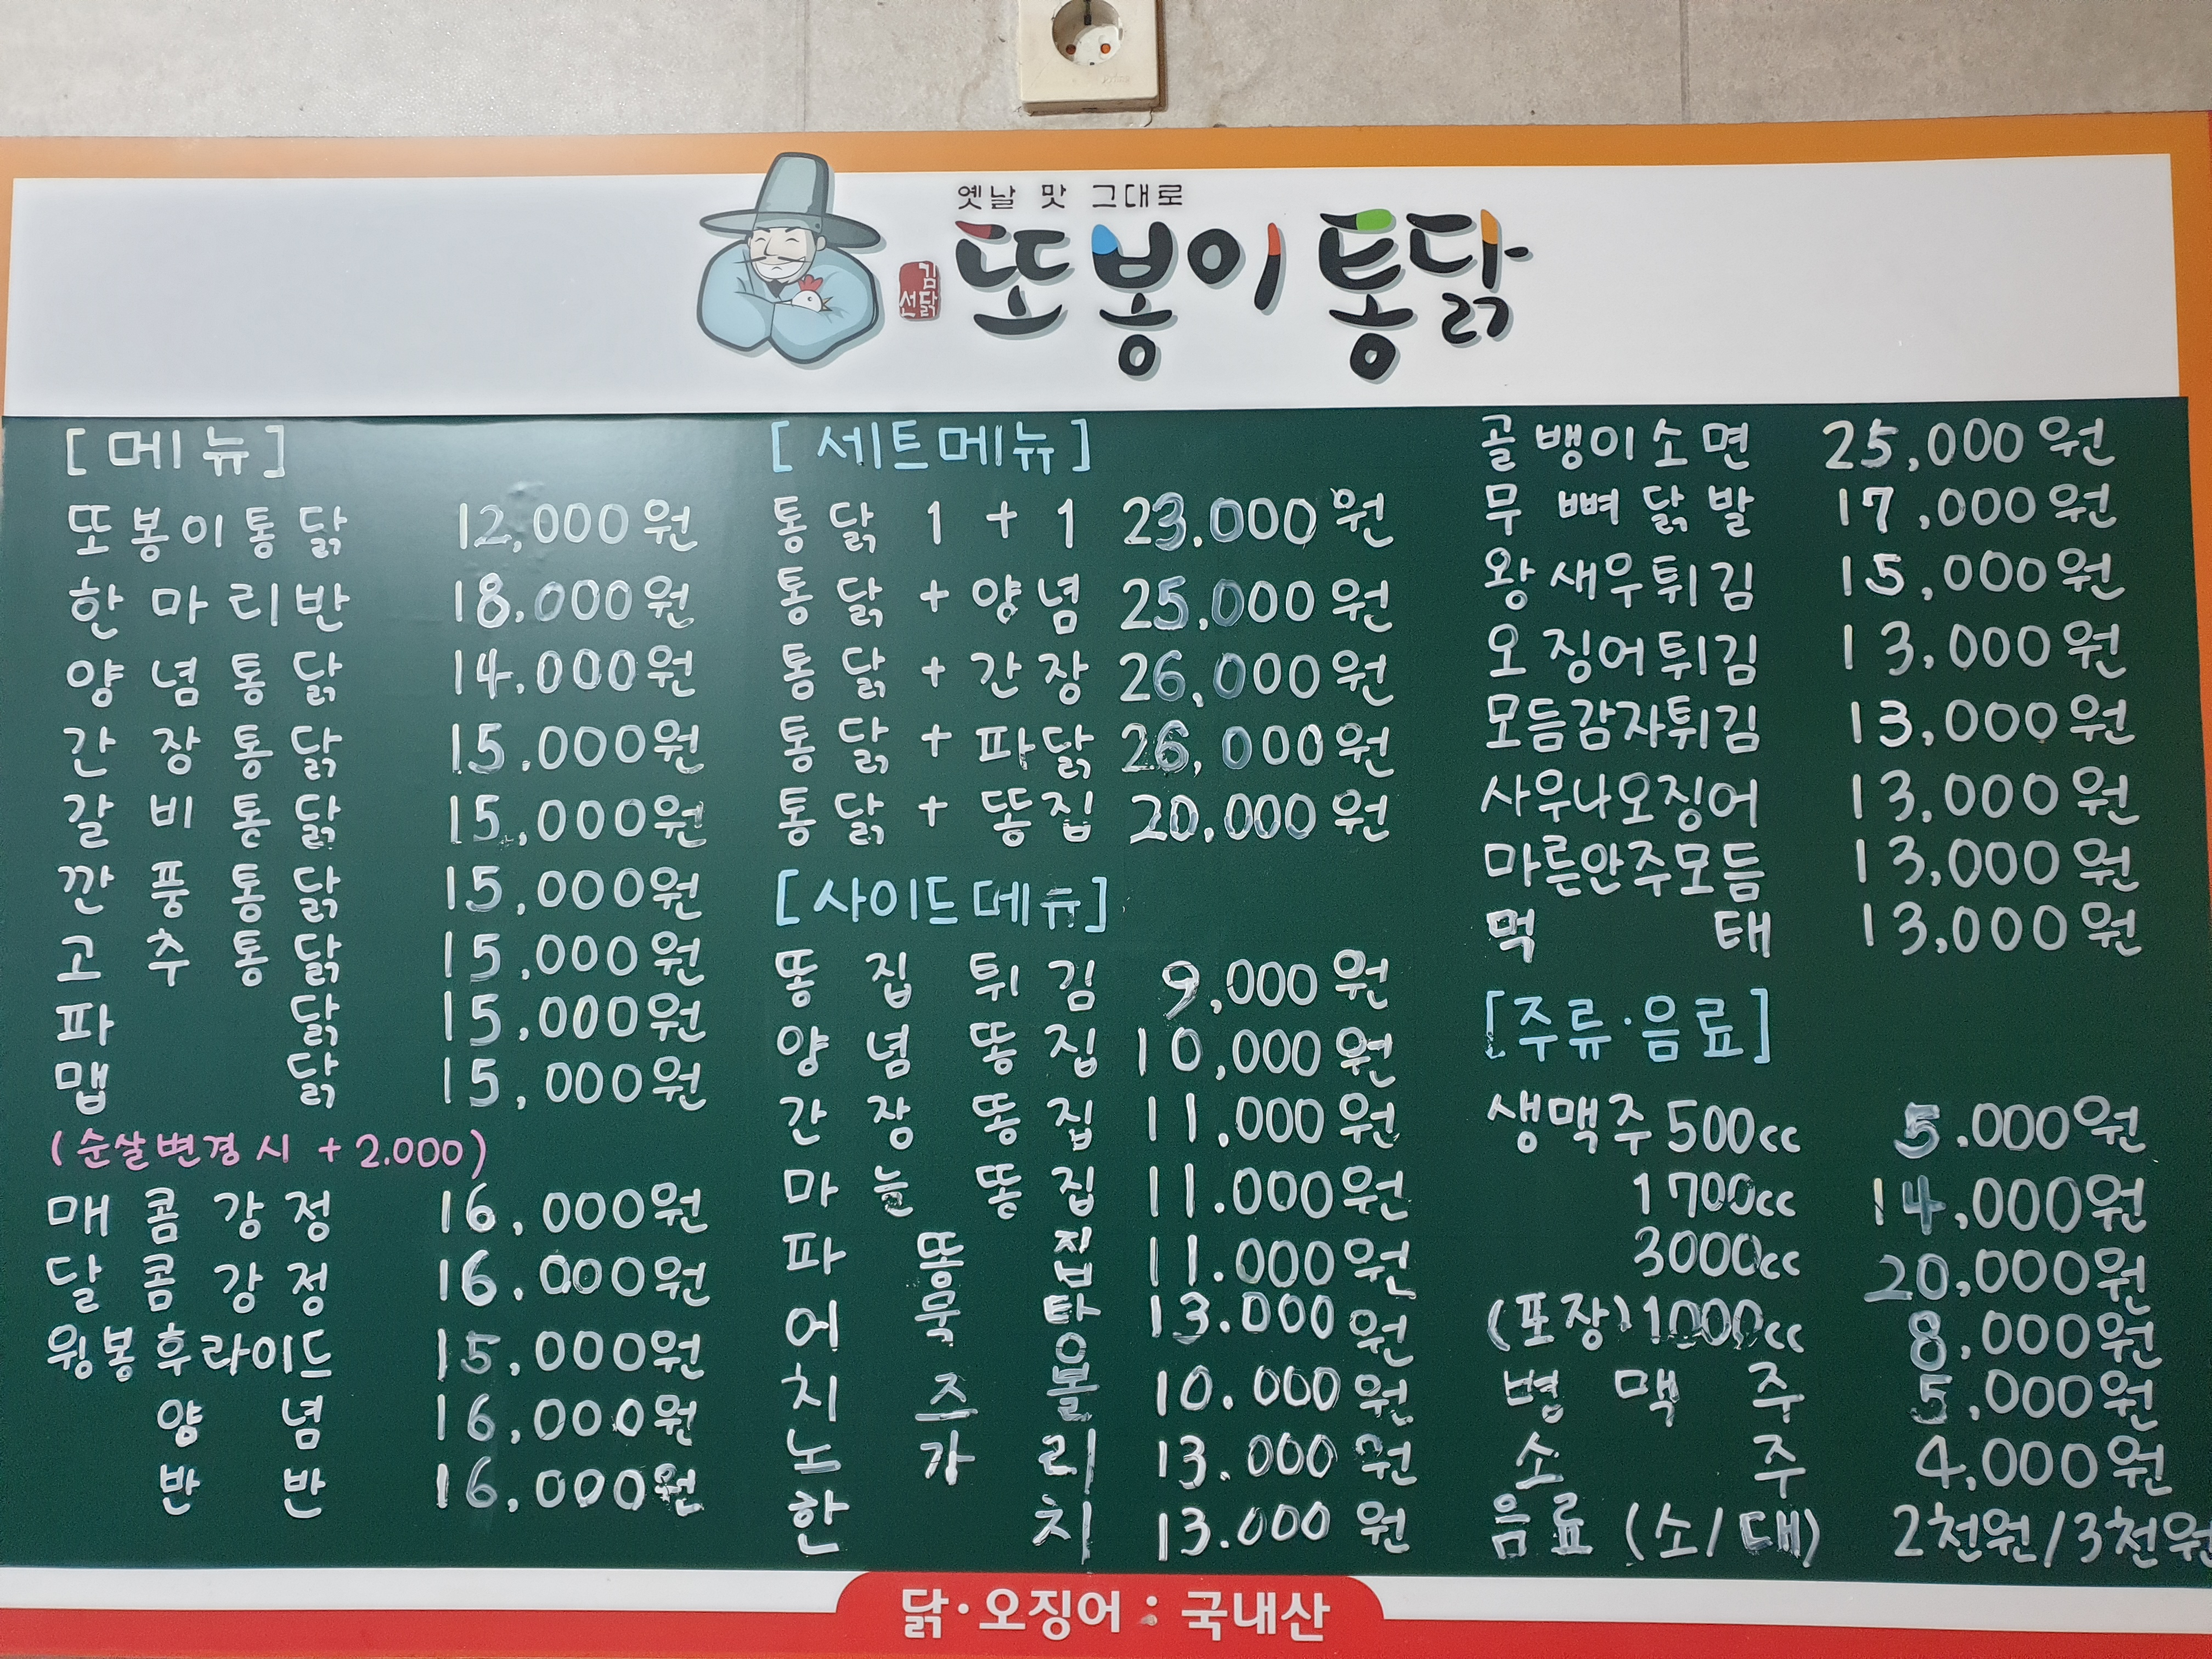 옛날 맛 그대로
김선닭
또봉이통닭
[메뉴]
또봉이통닭 12,000원
한마리반 18,000원
양념통닭 14,000원
간장통닭 15.000원
갈비통닭 15,000원
깐풍통닭 15,000원
고추통닭 15,000원
파닭 15,000원
맵닭 15,000원
(순살변경시 +2.000)
매콤강정 16,000원
달콤강정 16,000원
윙봉후라이드 15,000원
양념 16,000원
반반 16,000원
[세트메뉴]
통닭 1+1 23.000원
통닭+양념 25,000원
통닭+간장 26,000원
통닭+파닭 26,000원
통닭+똥집 20.000원
[사이드메뉴]
똥집튀김 9,000원
양념똥집 10,000원
간장똥집 11.000원
마늘똥집 11.000원
파똥집 11.000원
어묵탕 13.000원
치즈볼 10.000원
노가리 13.000원
한치 13.000원
골뱅이소면 25,000원
무뼈닭발 17,000원
왕새우튀김 15,000원
오징어튀김 13,000원
모듬감자튀김 13,000원
사우나오징어 13,000원
마른안주모듬 13,000원
먹태 13,000원
[주류·음료]
생맥주 500cc 5.000원
1700cc 14,000원
3000cc 20,000원
(포장)1000cc 8,000원
병맥주 5,000원
소주 4,000원
음료(소/대) 2천원/3천원
닭·오징어 : 국내산